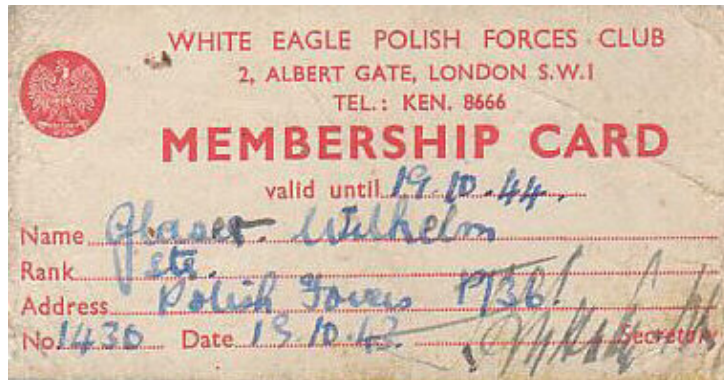 WHITE EAGLE POLISH FORCES CLUB
2, ALBERT GATE, LONDON S.W.1
TEL.: KEN. 8666
MEMBERSHIP CARD
valid until 19.10.44.
Name Glaser Wilhelm
Rank
Address Polish Forces P/36
No. 1430 Date 19.10.43. Secretary